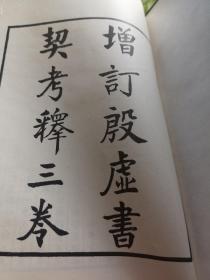 增訂殷虛書
契考釋三卷